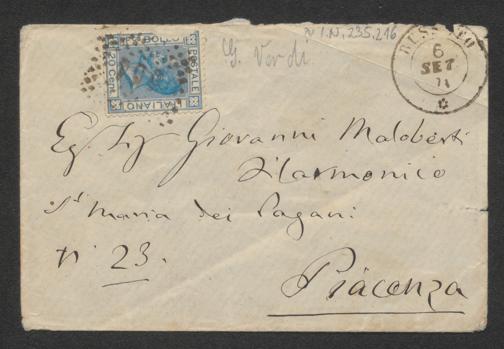 I.N. 235.216
G. Verdi
BOLLO
POSTALE
ITALIANO
20 Cent.
BUSSETO
6
SET
71
Eg. Sig Giovanni Maloberti
Filarmonico
Sta Maria dei Pagani
n° 23.
Piacenza